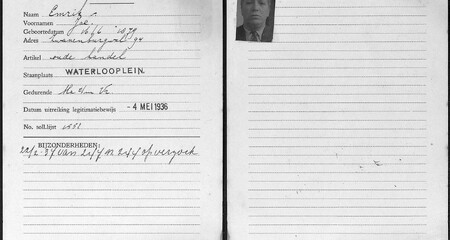 Naam Emrik
Voornamen Jac.
Geboortedatum 16/6 1879
Adres Zwanenburgwal 94
Artikel oude handel
Staanplaats WATERLOOPLEIN.
Gedurende Ma t/m Vr.
Datum uitreiking legitimatiebewijs - 4 MEI 1936
No. soll.lijst
BIJZONDERHEDEN:
op verzoek